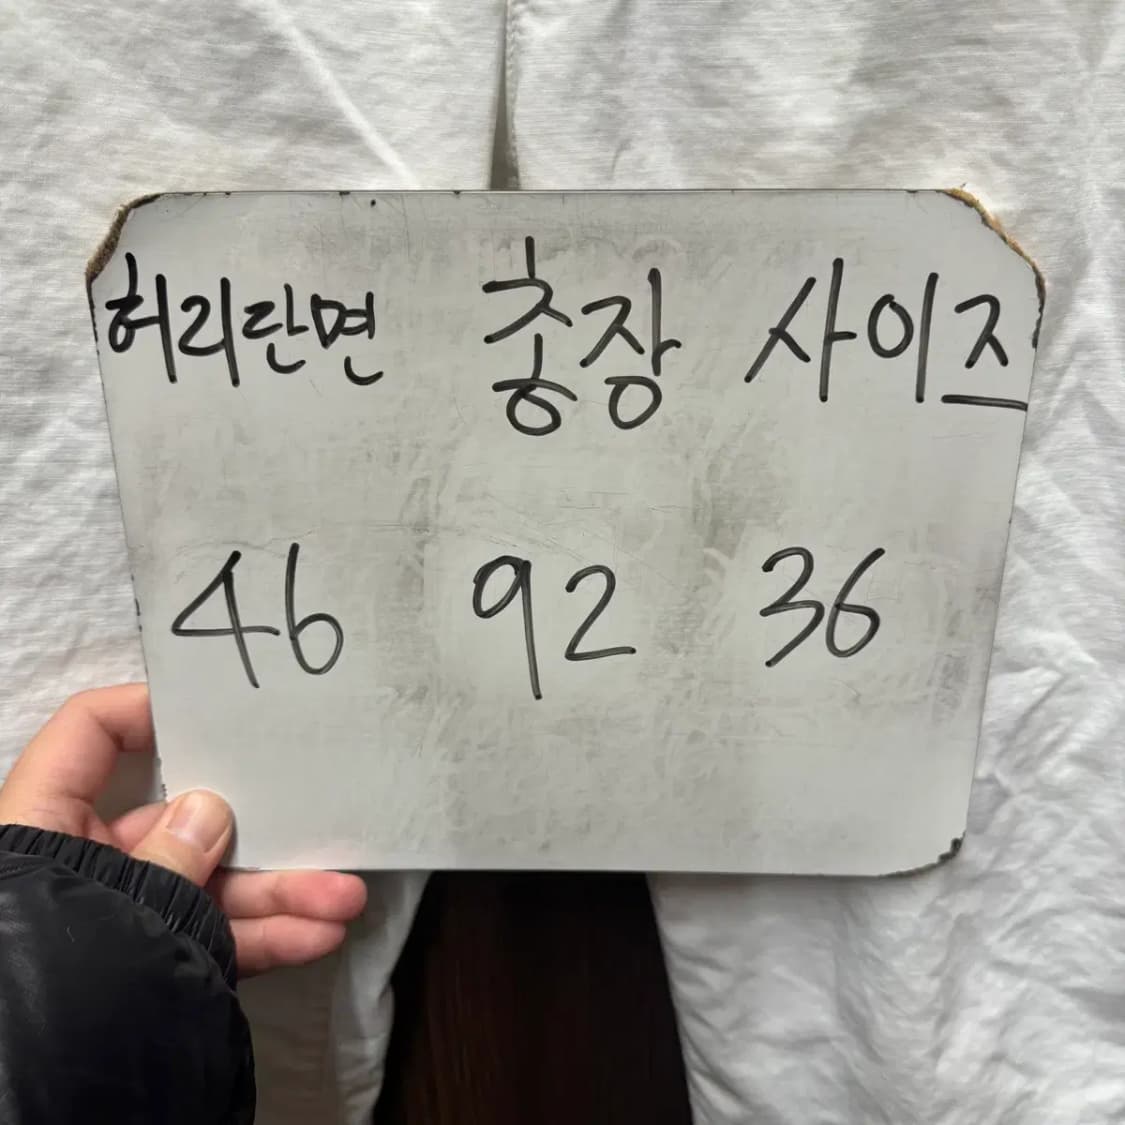 허리단면 총장 사이즈
46 92 36